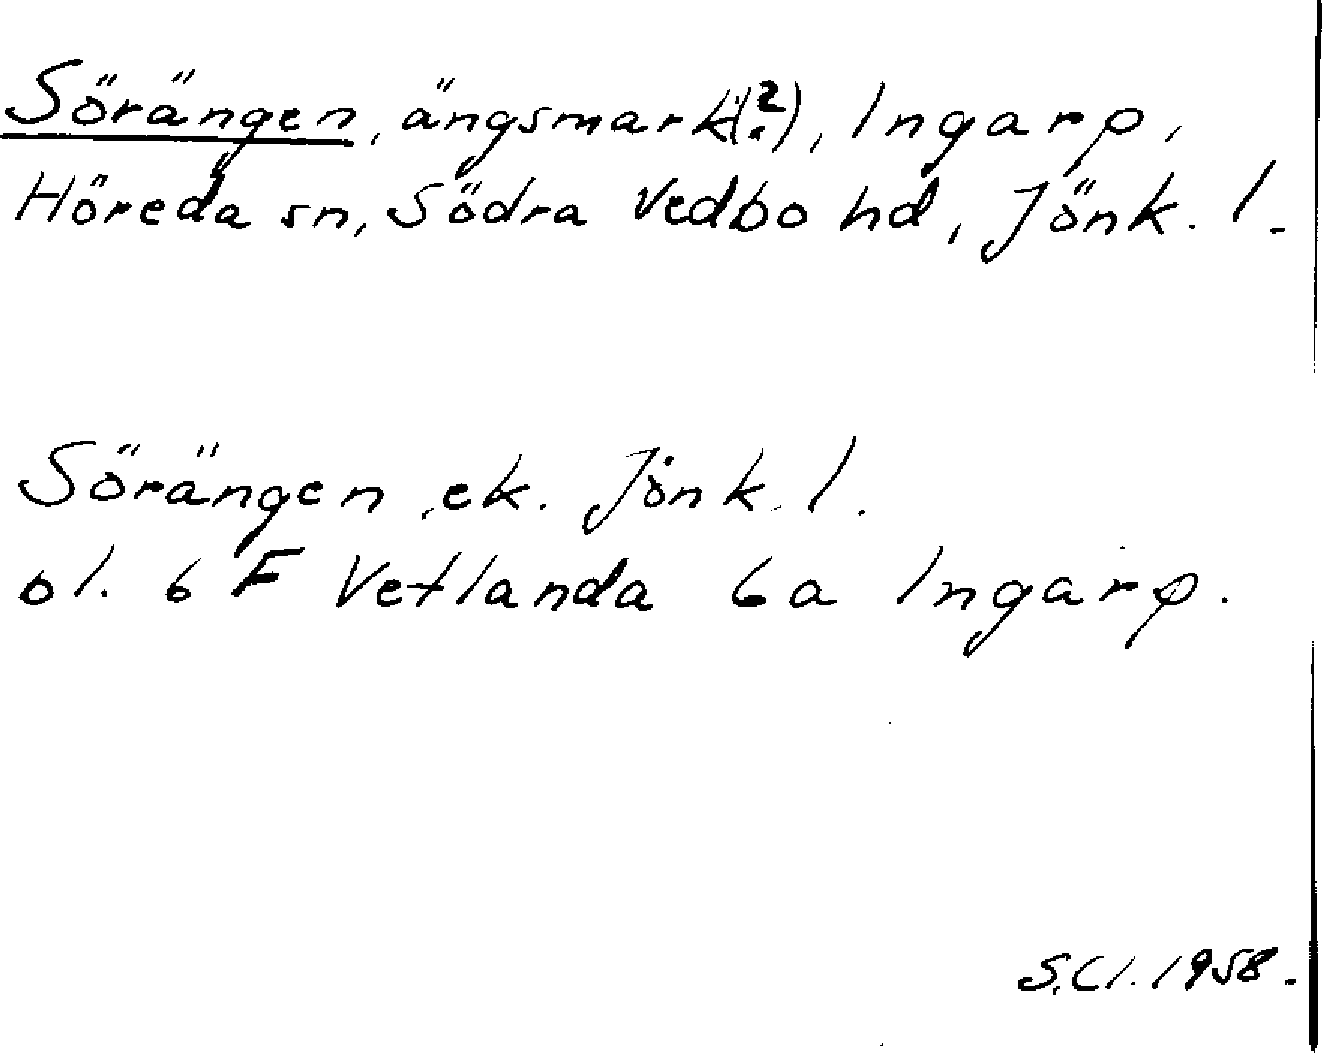 Sörängen, ängsmark(?), Ingarp,
Höreda sn, Södra Vedbo hd, Jönk. l.
Sörängen, ek. Jönk. l.
bl. 6 F Vetlanda 6a Ingarp.
S.Cl. 1958.